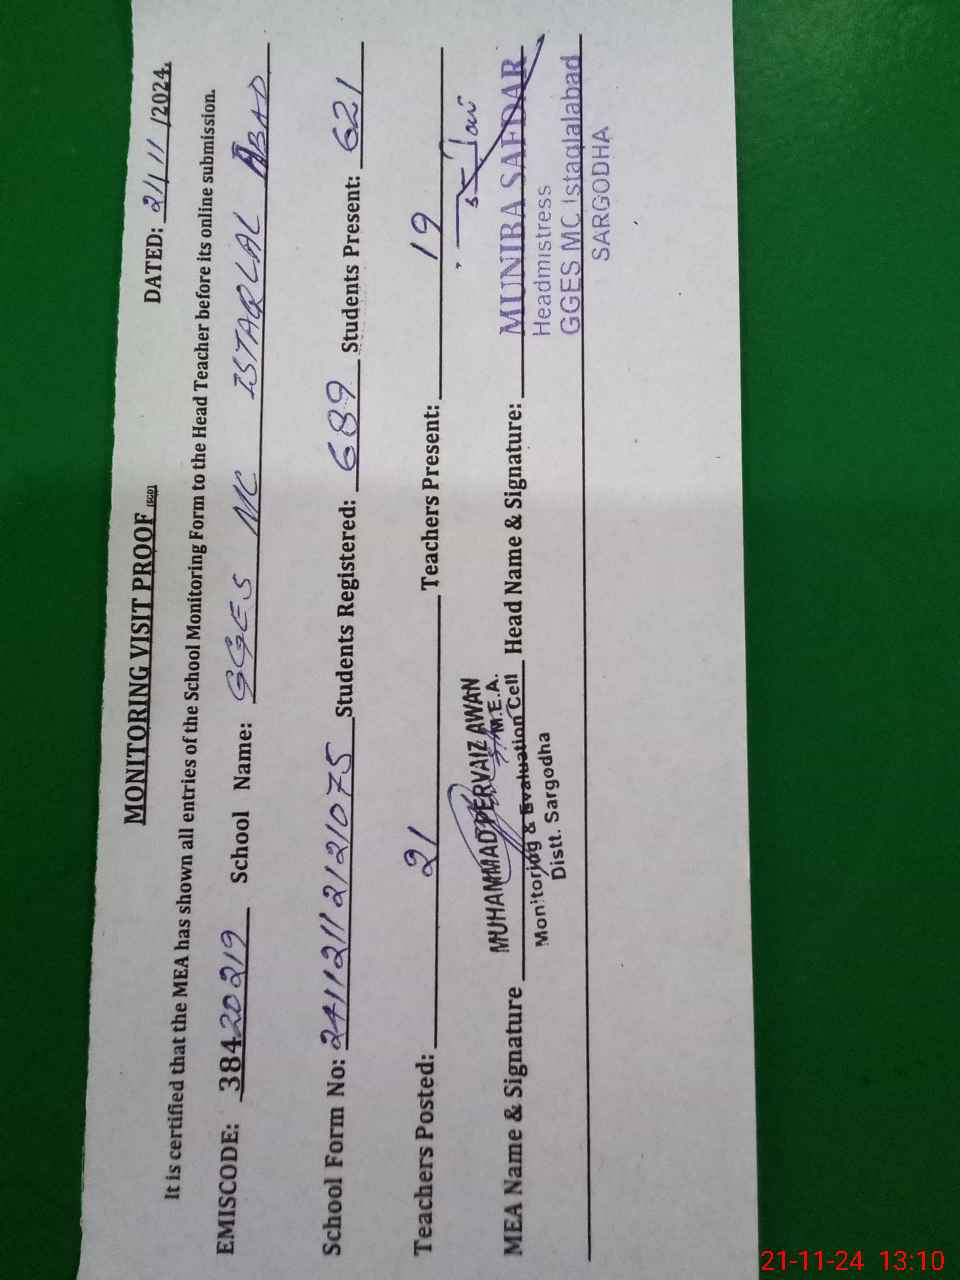 MONITORING VISIT PROOF (SGD)
DATED: 21/11/2024.
It is certified that the MEA has shown all entries of the School Monitoring Form to the Head Teacher before its online submission.
EMISCODE: 38420219 School Name: GGES MC ISTAQLAL ABAD
School Form No: 24112112121075 Students Registered: 689 Students Present: 621
Teachers Posted: 21 Teachers Present: 19
MEA Name & Signature MUHAMMAD PERVAIZ AWAN Head Name & Signature: MUNIRA SAFDAR
M.E.A. Headmistress
Monitoring & Evaluation Cell GGES MC Istaqlalabad
Distt. Sargodha SARGODHA
21-11-24 13:10